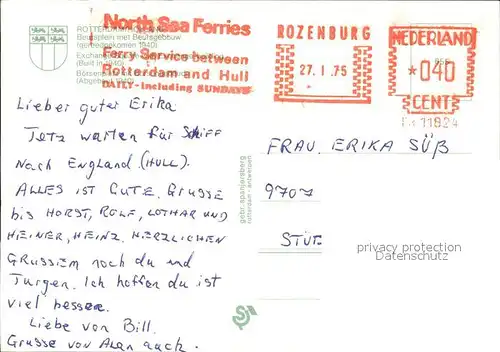 North Sea Ferries
Ferry Service between
Rotterdam and Hull
DAILY-including SUNDAYS
ROTTERDAM
Beursplein met Beursgebouw
(gereedgekomen 1940)
(Built in 1940)
ROZENBURG
27. 1. 75
NEDERLAND
*040
CENT
11924
Lieber guter Erika
Jetz warten für Schiff
Nach England. (HULL).
ALLES IST GUTE. GRUSSE
bis HORST, ROLF, LOTHAR UND
HEINER, HEINZ. HERZLICHEN
GRUSSEM noch du und
Jurgen. Ich hoffen du ist
viel besser.
Liebe von Bill.
Grusse von Alan auch.
gebr. spanjersberg
rotterdam - antwerpen
FRAU. ERIKA SÜß
9707
STUT
privacy protection
Datenschutz